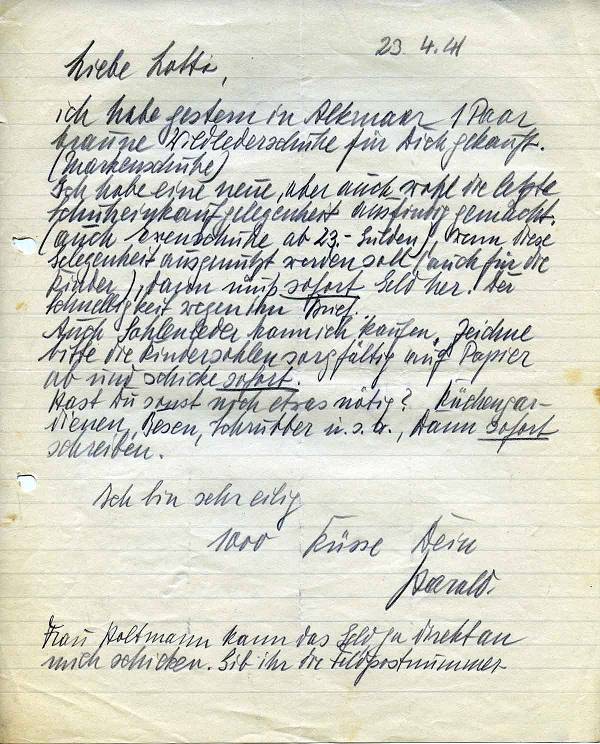 23.4.41
Liebe Lotti,
ich habe gestern in Alkmaar 1 Paar
braune Wildlederschuhe für Dich gekauft.
(Markenschuhe)
Ich habe eine neue, aber auch wohl die letzte
Schuheinkaufgelegenheit ausfindig gemacht.
(auch Herrenschuhe ab 23.- Gulden), Wenn diese
Gelegenheit ausgenutzt werden soll (auch für die
Kinder), dann muß sofort Geld her. Der
Schnelligkeit wegen im Brief.
Auch Sohlenleder kann ich kaufen, Zeichne
bitte die Kindersohlen sorgfältig auf Papier
ab und schicke sofort.
Hast Du sonst noch etwas nötig? Küchengar-
dienen, Besen, Schrubber u.s.w., Dann sofort
schreiben.
Ich bin sehr eilig
1000 Küsse Dein
Harald.
Frau Holtmann kann das Geld ja direkt an
mich schicken. Gib ihr die Feldpostnummer